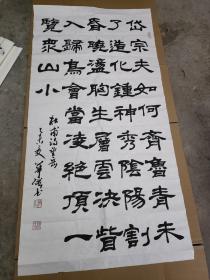 岱宗夫如何齊魯青未
了造化鍾神秀陰陽割
昏曉盪胸生層雲決眥
入歸鳥會當凌絕頂一
覽眾山小
杜甫詩望岳